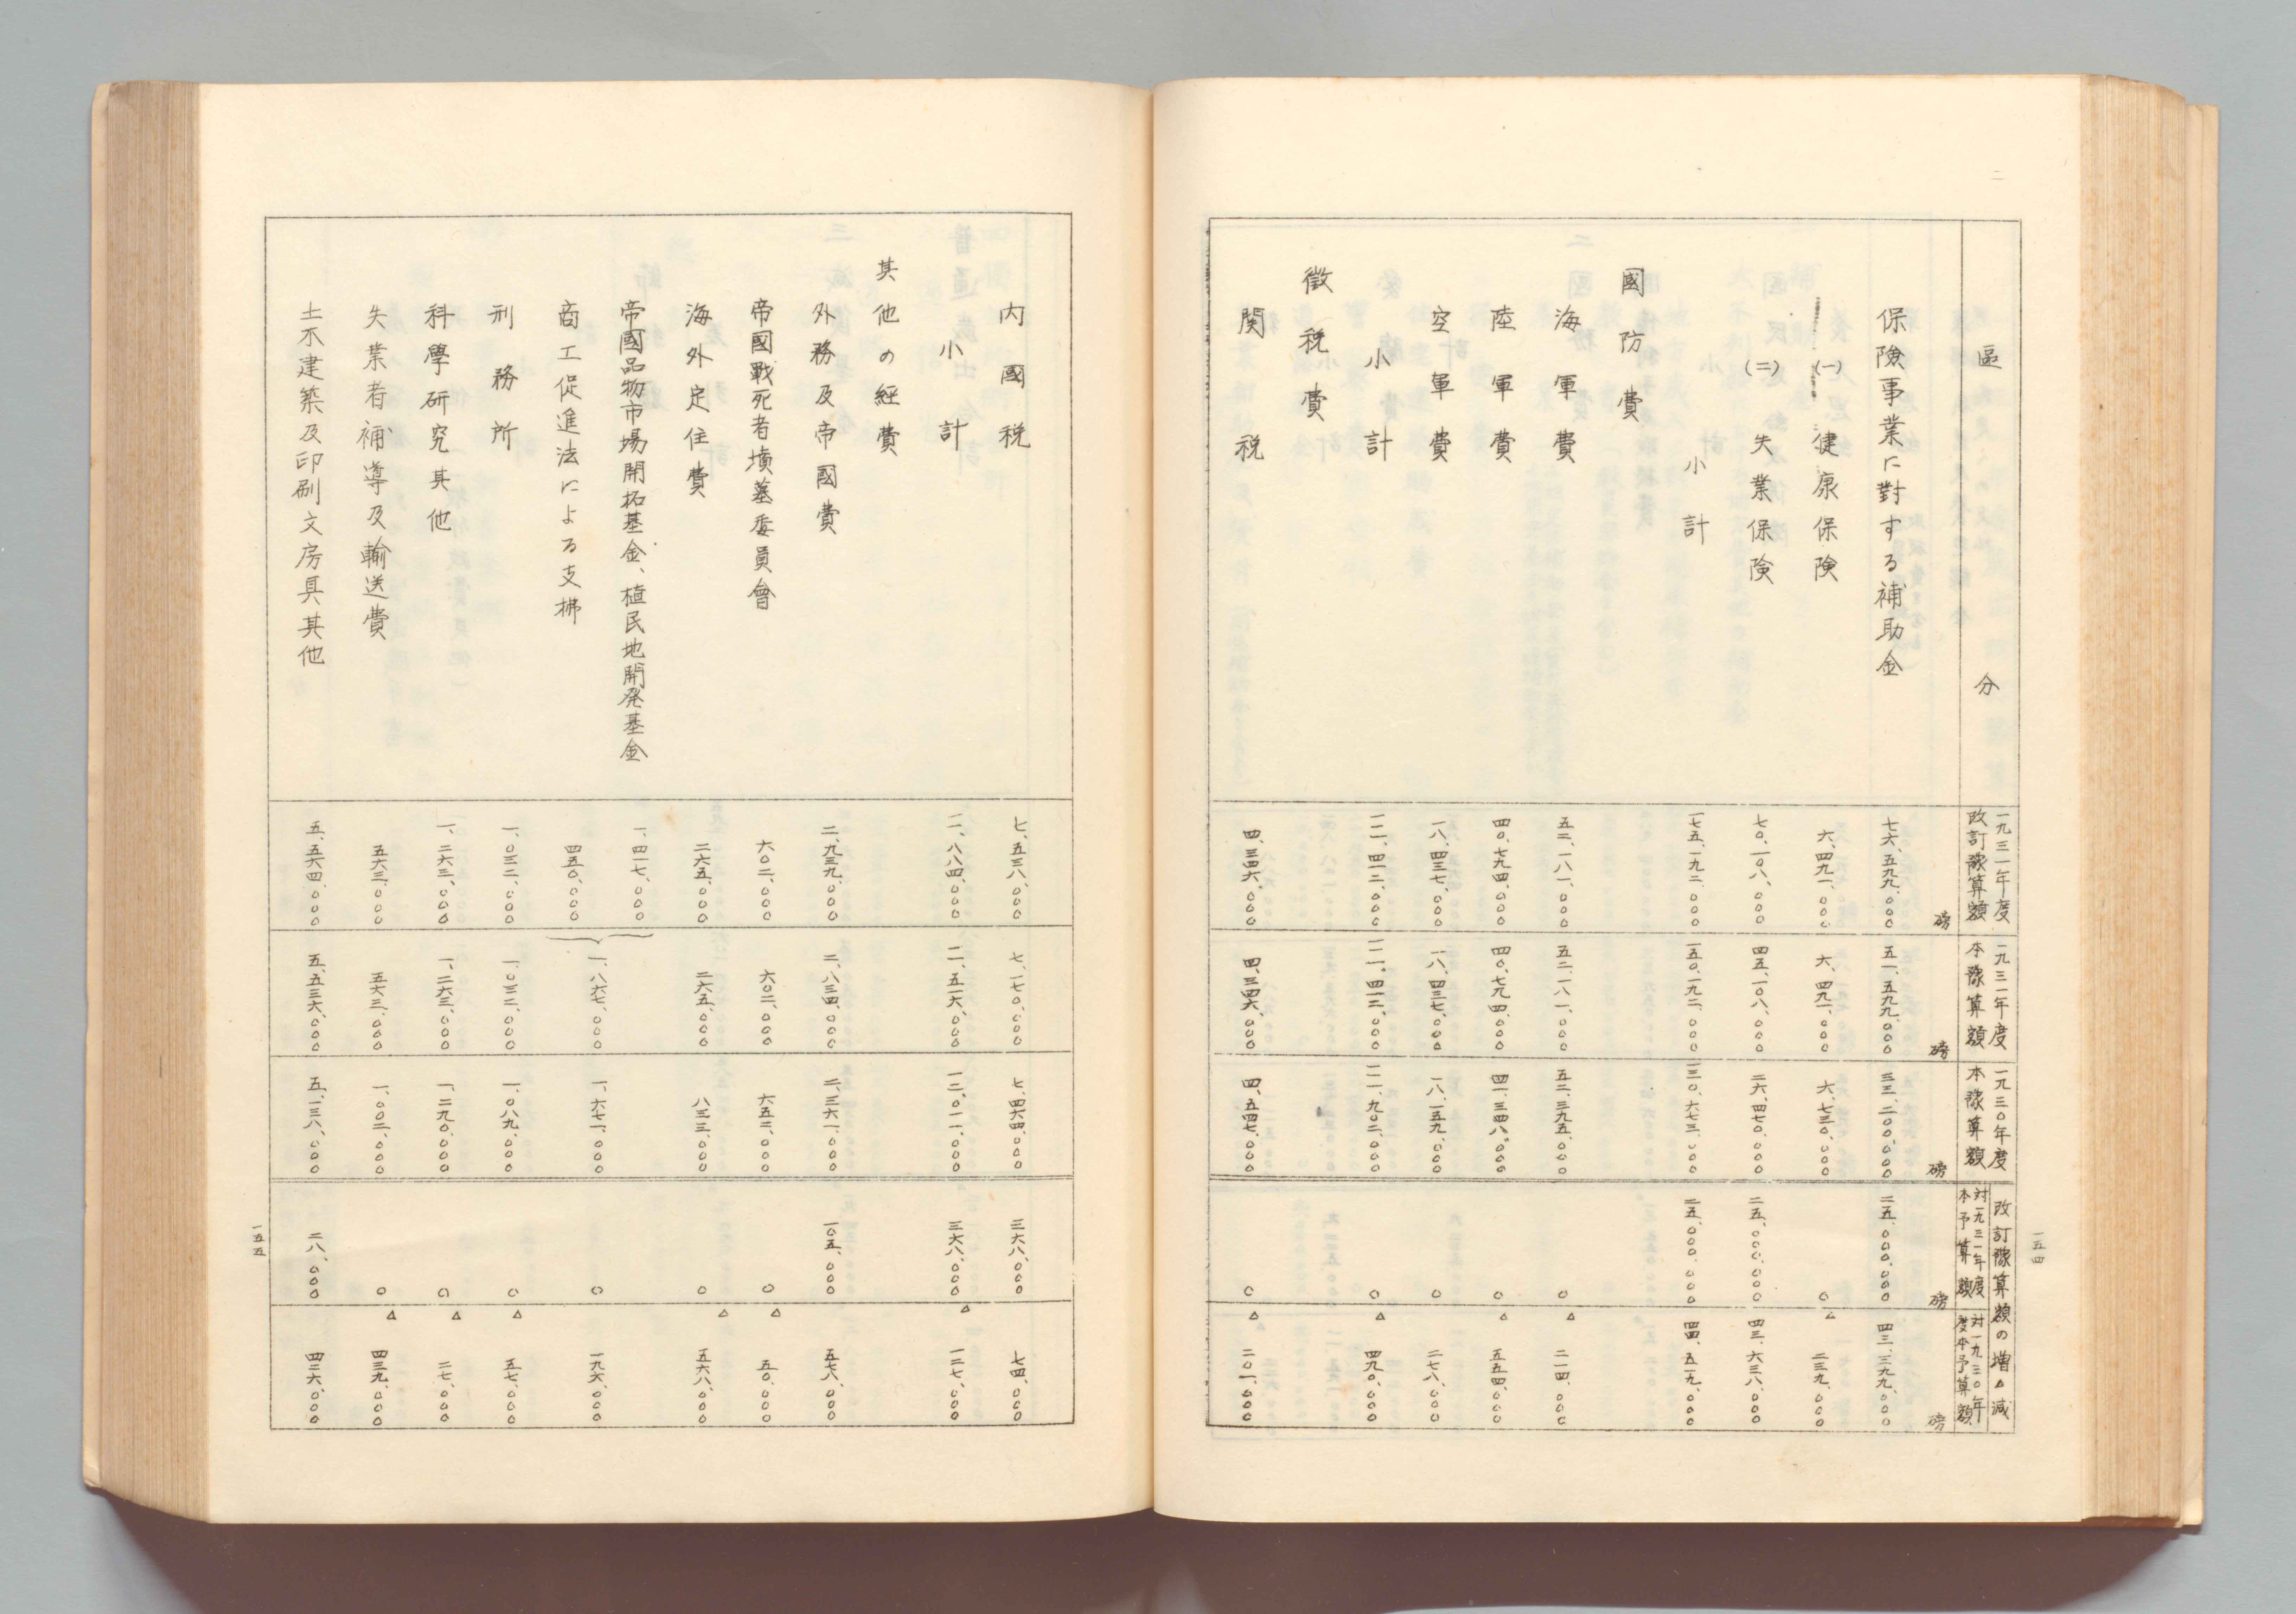 一五四
區分
一九三一年度
改訂豫算額
一九三一年度
本豫算額
一九三〇年度
本豫算額
改訂豫算額の増△減
対一九三一年度
本予算額
対一九三〇年
度本予算額
磅 磅 磅 磅 磅
保険事業に對する補助金 七六、五九九、〇〇〇 五一、五九九、〇〇〇 三三、二〇〇、〇〇〇 二五、〇〇〇、〇〇〇 四三、三九九、〇〇〇
(一) 健康保険 六、四九一、〇〇〇 六、四九一、〇〇〇 六、七三〇、〇〇〇 〇 △ 二三九、〇〇〇
(二) 失業保険 七〇、一〇八、〇〇〇 四五、一〇八、〇〇〇 二六、四七〇、〇〇〇 二五、〇〇〇、〇〇〇 四三、六三八、〇〇〇
小計 一七五、一九二、〇〇〇 一五〇、一九二、〇〇〇 一三〇、六七三、〇〇〇 二五、〇〇〇、〇〇〇 四四、五一九、〇〇〇
國防費
海軍費 五二、一八一、〇〇〇 五二、一八一、〇〇〇 五二、三九五、〇〇〇 〇 △ 二一四、〇〇〇
陸軍費 四〇、七九四、〇〇〇 四〇、七九四、〇〇〇 四一、三四八、〇〇〇 〇 △ 五五四、〇〇〇
空軍費 一八、四三七、〇〇〇 一八、四三七、〇〇〇 一八、一五九、〇〇〇 〇 二七八、〇〇〇
小計 一一一、四一二、〇〇〇 一一一、四一二、〇〇〇 一一一、九〇二、〇〇〇 〇 △ 四九〇、〇〇〇
徴税費
関税 四、三四六、〇〇〇 四、三四六、〇〇〇 四、五四七、〇〇〇 〇 △ 二〇一、〇〇〇
内國税 七、五三八、〇〇〇 七、一七〇、〇〇〇 七、四六四、〇〇〇 三六八、〇〇〇 七四、〇〇〇
小計 一一、八八四、〇〇〇 一一、五一六、〇〇〇 一二、〇一一、〇〇〇 三六八、〇〇〇 △ 一二七、〇〇〇
其他の経費
外務及帝國費 二、九三九、〇〇〇 二、八三四、〇〇〇 二、三六一、〇〇〇 一〇五、〇〇〇 五七八、〇〇〇
帝國戰死者墳墓委員會 六〇二、〇〇〇 六〇二、〇〇〇 六五二、〇〇〇 〇 △ 五〇、〇〇〇
海外定住費 二六五、〇〇〇 二六五、〇〇〇 八三三、〇〇〇 〇 △ 五六八、〇〇〇
帝國品物市場開拓基金、植民地開発基金 一、四一七、〇〇〇
商工促進法による支拂 四五〇、〇〇〇 一、八六七、〇〇〇 一、六七一、〇〇〇 〇 一九六、〇〇〇
刑務所 一、〇三二、〇〇〇 一、〇三二、〇〇〇 一、〇八九、〇〇〇 〇 △ 五七、〇〇〇
科學研究其他 一、二六三、〇〇〇 一、二六三、〇〇〇 一、二九〇、〇〇〇 〇 △ 二七、〇〇〇
失業者補導及輸送費 五六三、〇〇〇 五六三、〇〇〇 一、〇〇二、〇〇〇 〇 △ 四三九、〇〇〇
土木建築及印刷文房具其他 五、五六四、〇〇〇 五、五三六、〇〇〇 五、一三八、〇〇〇 二八、〇〇〇 四二六、〇〇〇
一五五